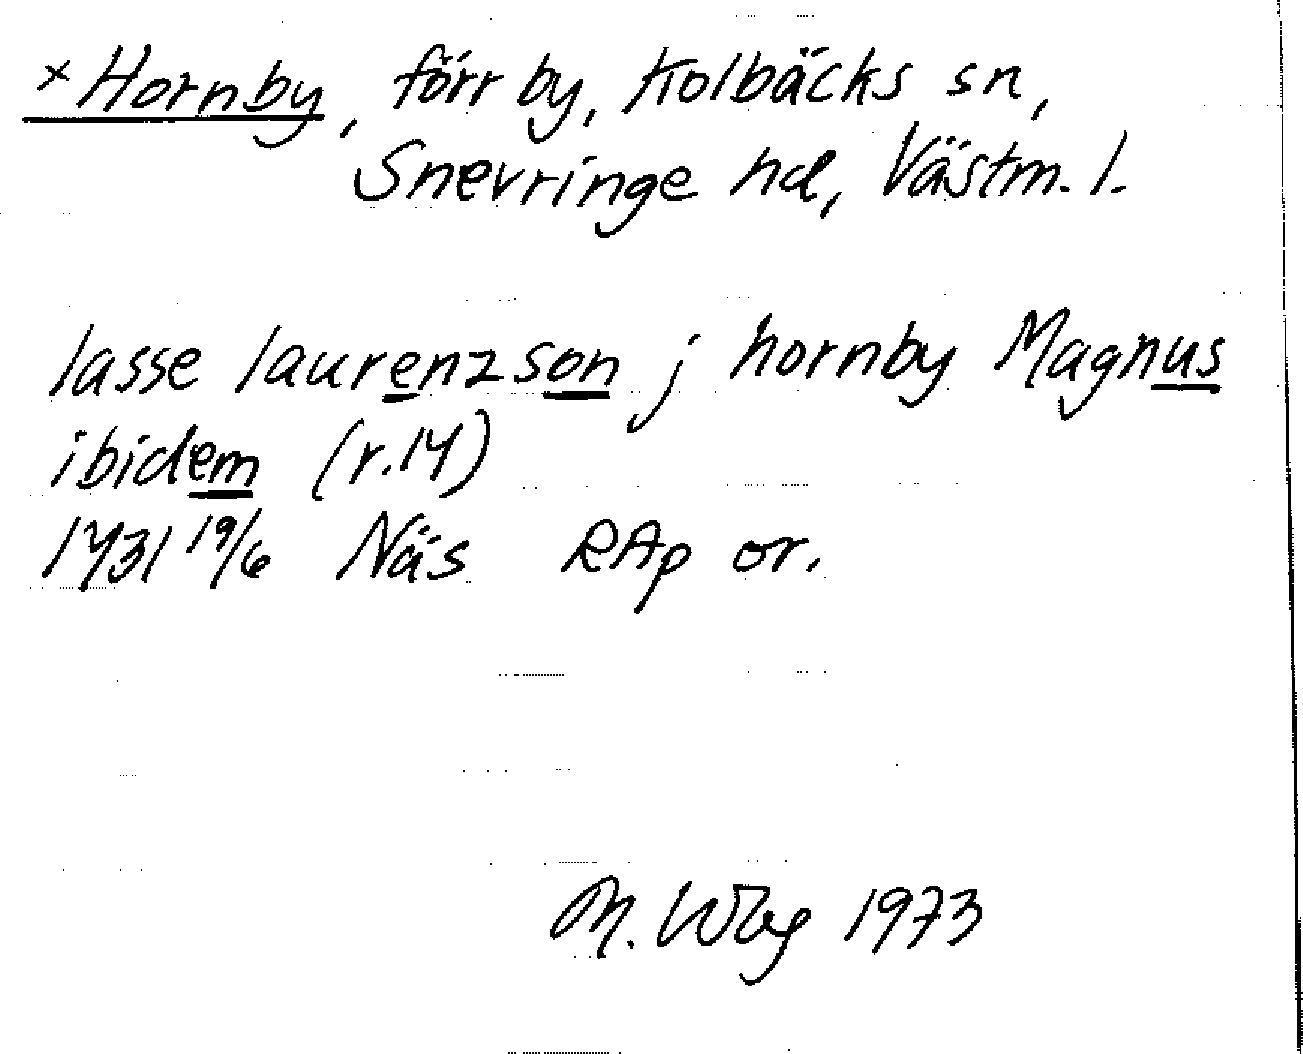 ×Hornby, förr by, Kolbäcks sn,
Snevringe hd, Västm. l.
lasse laurenzson j hornby Magnus
ibidem (r.14)
1431 19/6 Näs RAp or.
M. Wbg 1973